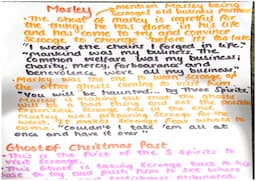 Marley
mention Marley being
Scrooge's old business
The ghost of marley is regretful for
the things he has done in his life
and has come to try and convince
Scrooge to change before it's too late.
"I wear the chains I forged in life."
"Mankind was my business. The
common welfare was my business;
charity, mercy, forbearance and
benevolence, were all my business."
Marley was the one to Scrooge of
the other ghosts coming to visit
"You will be haunted... by Three Spirits."
Marley is making out that
will be a bad thing and not the positive
Marley was preparing Scrooge for the
It makes Scrooge fear who to
come. "Couldn't I take 'em all at
once and have it over"
Ghost of Christmas Past
This is the first of the 3 spirits to
visit Scrooge.
This ghost is taking Scrooge back to his
past to try and push him to see where